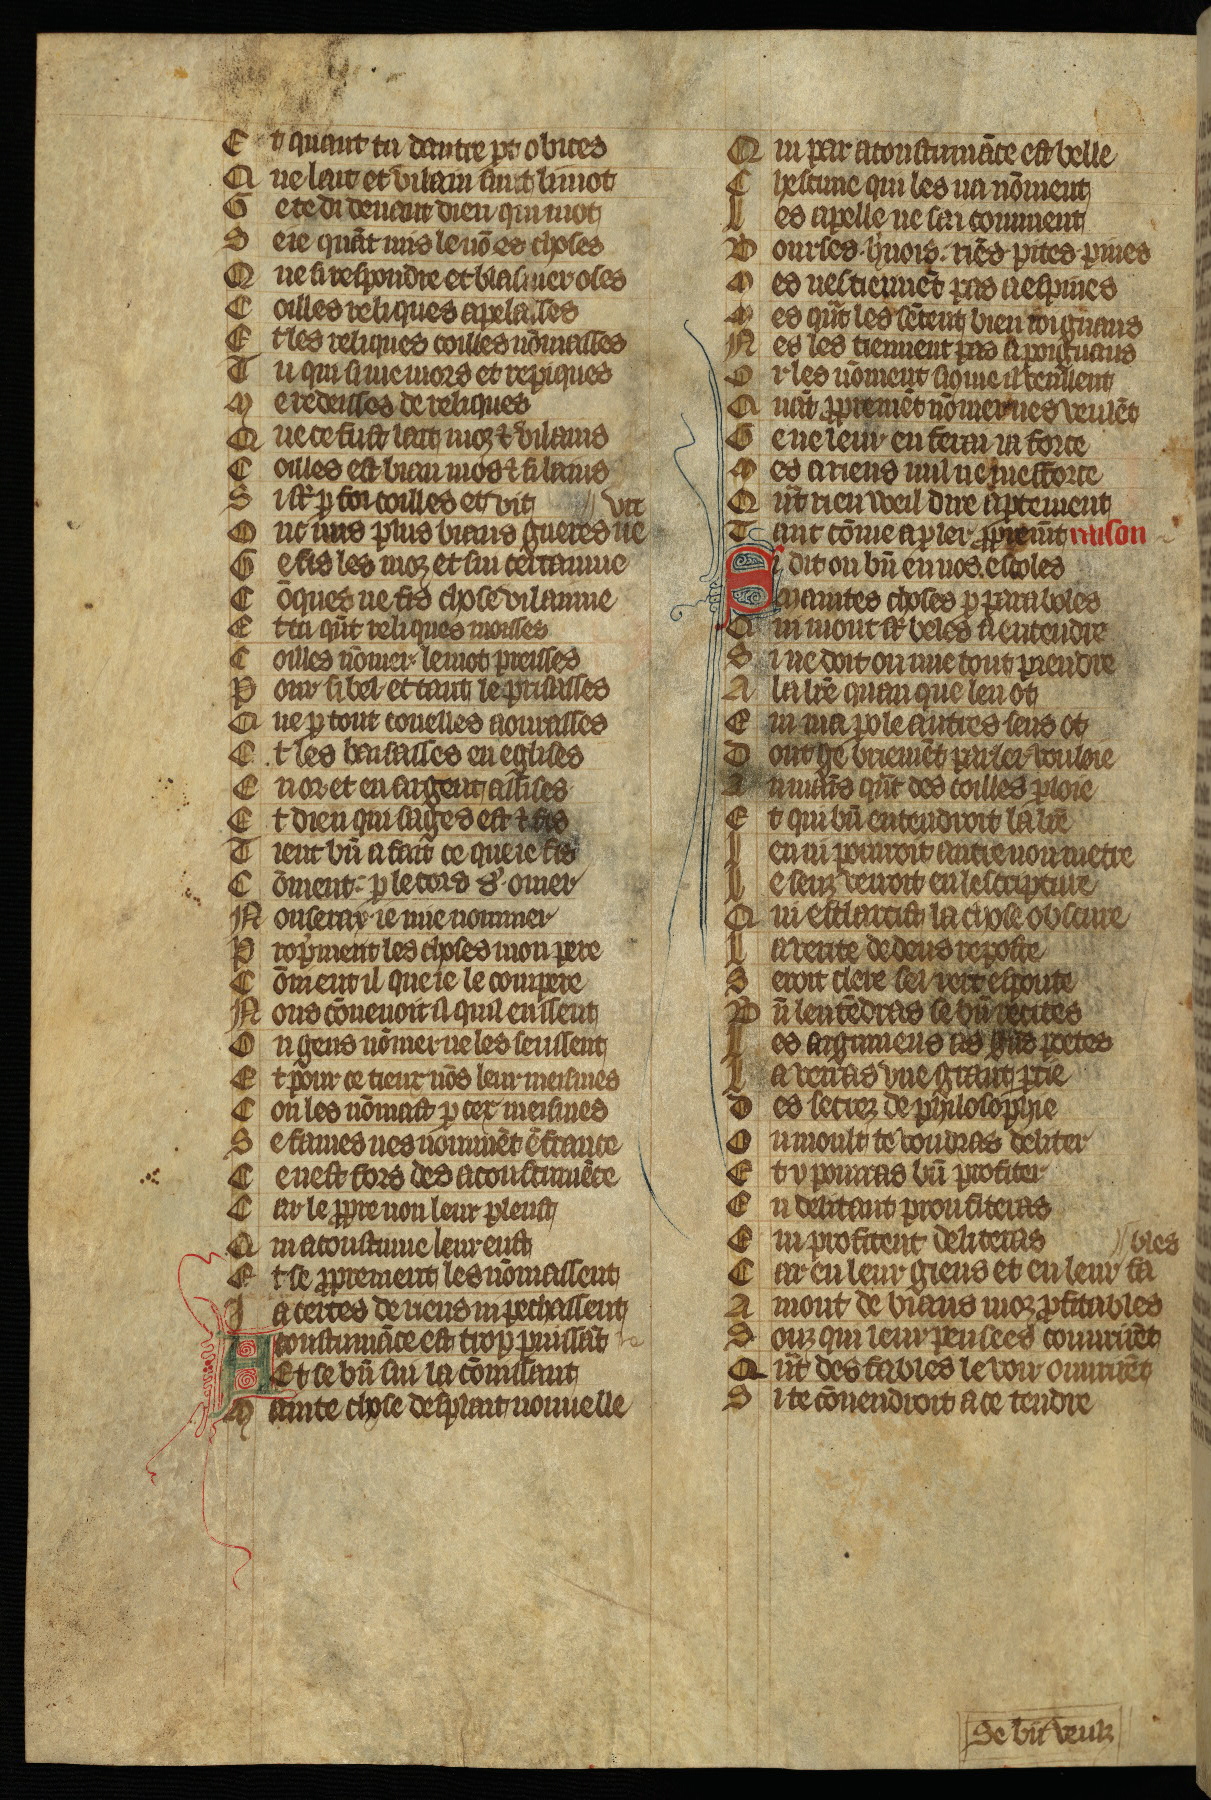 Et quant tu dautre pt obices
Que lait et vilain sunt li mot
Ge te di deuant dieu qui mot
Se ie quāt mis le nō es choses
Que si respondre et blasmer oses
Coilles reliques apelasses
Et les reliques coilles nōmasses
Tu qui si me mors et repiques
Me redeisses de reliques
Que ce fust lait moz & vilains
Coilles est biau mos & si lains
Si sūt p foi coilles et vit
Onc nus plus biaus gueres ne vit
Ge fis les moz et sui certainne
Cōques ne fis chose vilainne
Et tu qn̄t reliques moisses
Coilles nōmer. le mot preisses
Pour si bel et tant le prisasses
Que p tout couelles aourasses
Et les baisasses en eglises
En or et en argent assises
Et dieu qui sages est & fis
Tient bn̄ a fait ce que ie fis
Cōment. p le cors s. omer
Noseray ie mie nommer
Proprment les choses mon pere
Cōment il que ie le compere
Nons cōuenoit il quil eussent
On gens nōmer ne les seussent
Et pour ce tieux nōs leur meismes
Con les nōmast p cex meismes
Se fames nes nōmment ē france
Ce nest fors des acoustumāce
Car le ppre non leur pleust
Qui acoustume leur eust
Et se pprement les nōmassent
Ja certes de riens ni pechassent
Acoustumāce est trop puissāt
Et se bn̄ sui la cōnissant
Mainte chose desplait nouuelle
Qui par acoustumāce est belle
Chescune qui les ua nōment
Les apelle ne sai comment
Bourses. hnois. riēs. pites. pines
Mes nes tiennēt pas a espines
Mes qn̄t les sētent bien ioignans
Nes les tiennent pas a poignans
Or les nōment si ome il veullent
Quāt ppremēt nōmer nes veulēt
Ge ne leur en ferai ia force
Mes a riens nul ne me efforce
Qn̄t rien weil dire aptement
Tant cōme a pler pprem̄t raison
Si dit on bn̄ en nos escoles
Maintes choses p paraboles
Qui mout sūt beles a entendre
Si ne doit on mie tout prendre
A la lrē quan que len ot
En ma pole autres sens ot
Dont ge briemēt parler vouloie
A mains qn̄t des coilles ploie
Et qui bn̄ entendroit la lrē
Len ni pourroit autre non metre
Le senz verroit en lescripture
Qui esclarcist la chose obscure
La verite dedens reposte
Seroit clere sel yert esposte
Bn̄ lentēdras se bn̄ recites
Les argumens as gns poetes
La verras vne grant ptie
Des secrez de philosophie
Ou moult te voudras deliter
Et y pourras bn̄ profiter
En delitant proufiteras
En profitent deliteras
Car en leur gieus et en leur fables
A mout de biaus moz pfitables
Souz qui leur pensees couurirēt
Qn̄t des fables le voir ouurirēt
Si te cōuendroit a ce tendre
Se bn̄ veulz